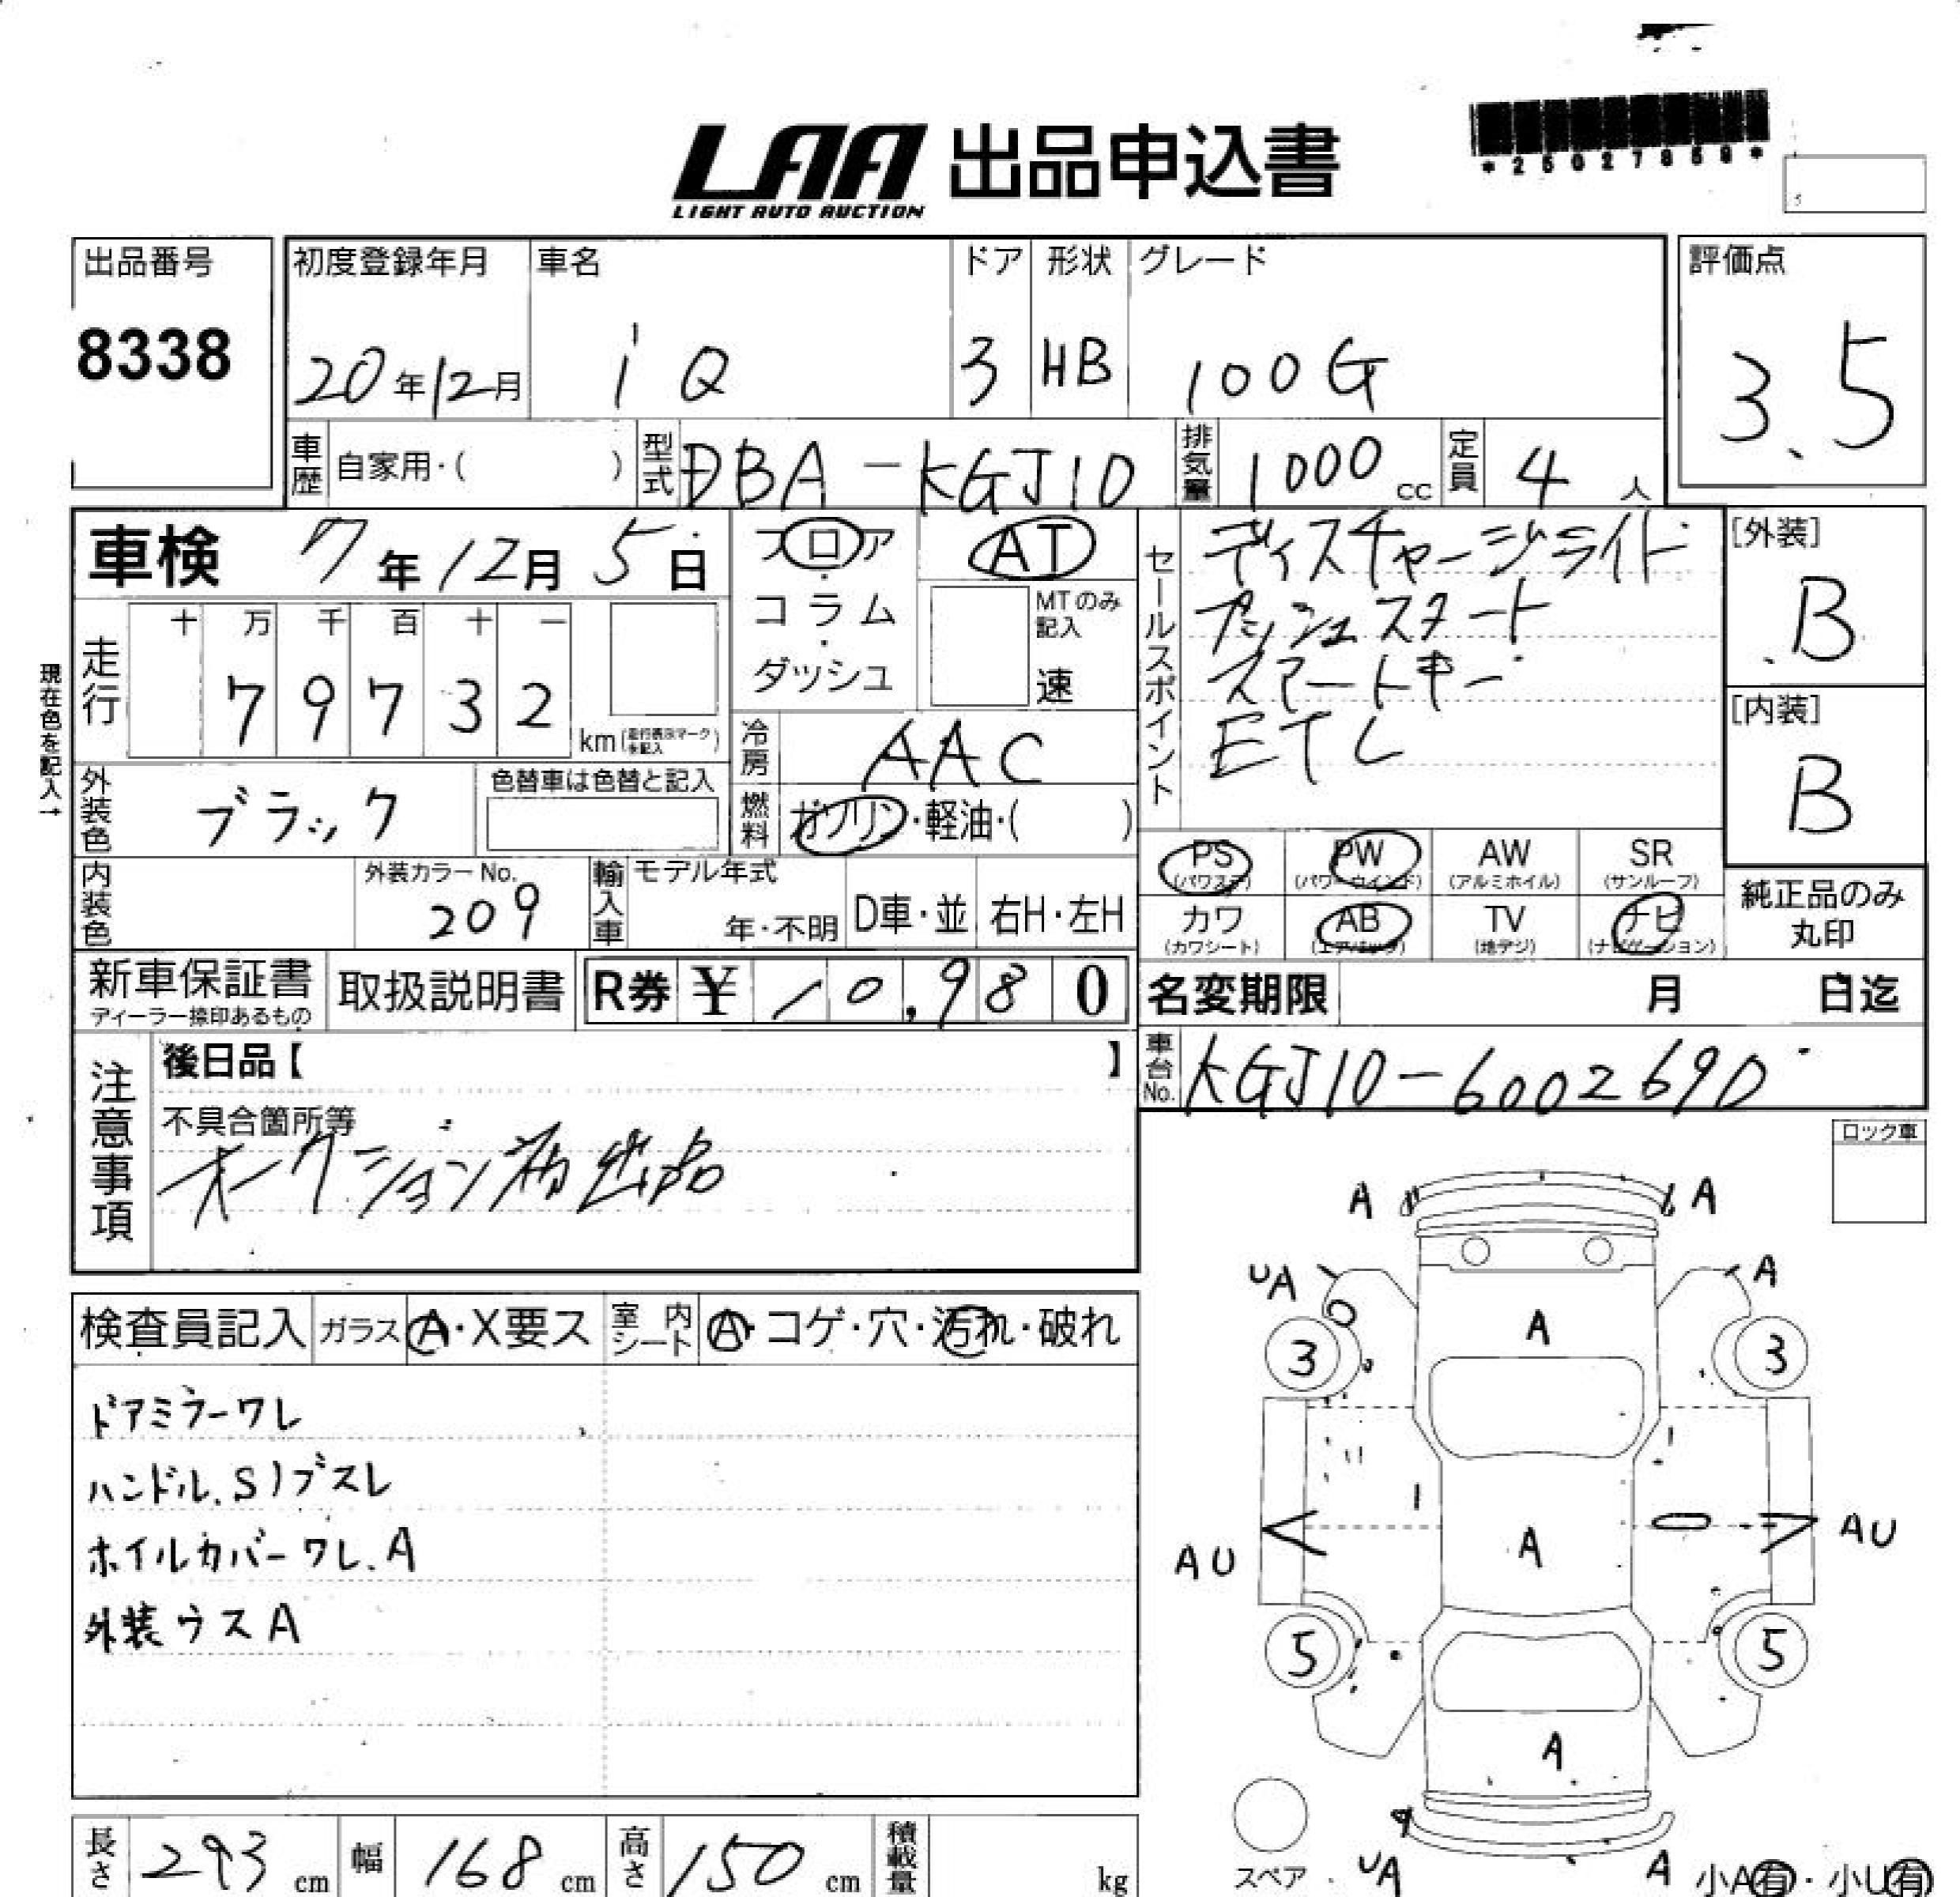 LAA 出品申込書
LIGHT AUTO AUCTION
*25027859*
出品番号
8338
初度登録年月
20年12月
車名
iQ
ドア
3
形状
HB
グレード
100G
評価点
3.5
車歴 自家用・( )
型式 DBA-KGJ10
排気量 1000cc
定員 4人
車検 7年12月5日
フロア・コラム・ダッシュ
AT
MTのみ記入
速
セールスポイント
ディスチャージライト
プッシュスタート
スマートキー
ETC
[外装]
B
[内装]
B
現在色を記入→
走行
十 万 千 百 十 一
7 9 7 3 2
km(走行表示マーク未記入)
冷房 AAC
燃料 ガソリン・軽油・( )
外装色 ブラック
色替車は色替と記入
内装色
外装カラーNo.
209
輸入車
モデル年式
年・不明
D車・並
右H・左H
PS (パワステ)
PW (パワーウインド)
AW (アルミホイル)
SR (サンルーフ)
カワ (カワシート)
AB (エアバック)
TV (地デジ)
ナビ (ナビゲーション)
純正品のみ
丸印
新車保証書
ディーラー捺印あるもの
取扱説明書
R券 ¥ 10,980
名変期限 月 日迄
車台No. KGJ10-6002690
注意事項
後日品【 】
不具合箇所等
オークション初出品
ロック車
検査員記入
ガラス A・X要ス
室内シート A・コゲ・穴・汚れ・破れ
ドアミラーワレ
ハンドル.S)ブスレ
ホイルカバーワレ.A
外装ウスA
A A
UA A
A
3 3
A
AU AU
5 5
A
スペア
UA A
小A有・小U有
長さ 293cm
幅 168cm
高さ 150cm
積載量 kg